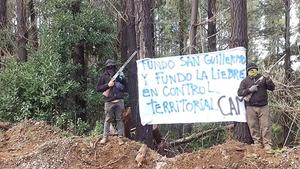 FUNDO SAN GUILLERMO
Y FUNDO LA LIEBRE
EN CONTROL
TERRITORIAL CAM